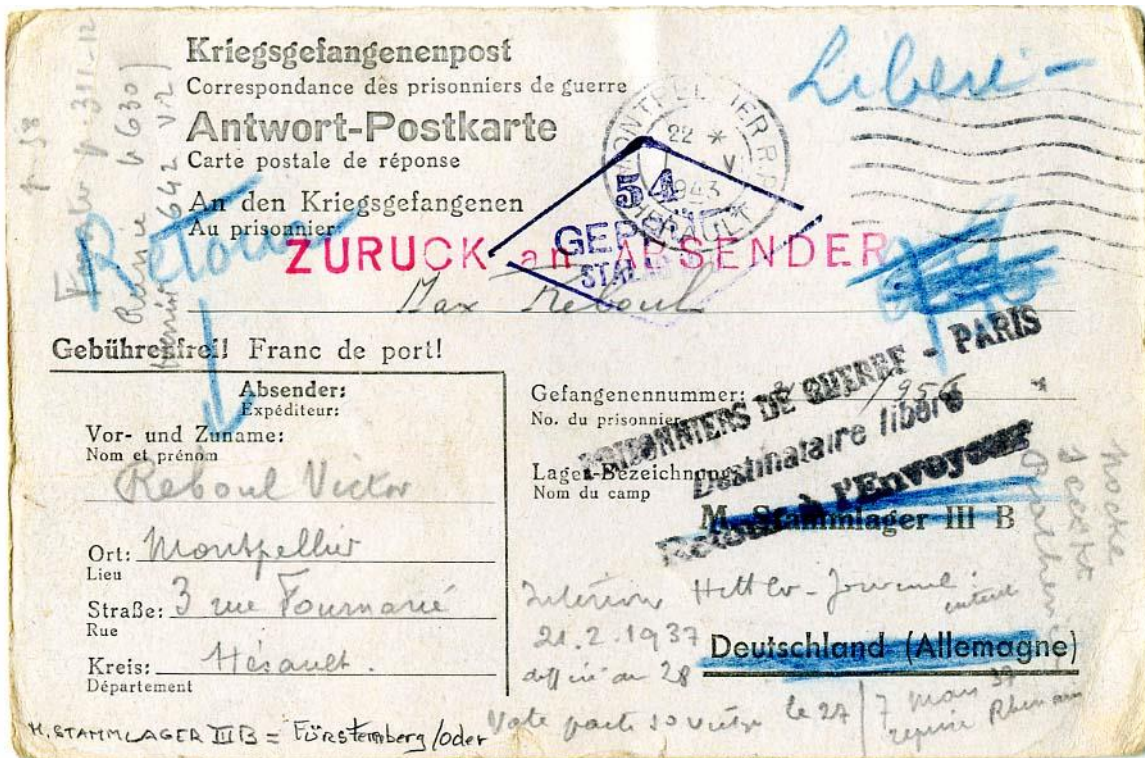 Kriegsgefangenenpost
Correspondance des prisonniers de guerre
Antwort-Postkarte
Carte postale de réponse
An den Kriegsgefangenen
Au prisonnier
Libéré -
MONTPELLIER R.P.
22 *
V
1943
HERAULT
54
GEPRÜFT
STALAG
Retour
ZURUCK an ABSENDER
Max Reboul
Gebührenfrei! Franc de port!
Absender:
Expéditeur:
Vor- und Zuname:
Nom et prénom
Reboul Victor
Ort: Montpellier
Lieu
Straße: 3 rue Fournarié
Rue
Kreis: Hérault.
Département
Gefangenennummer:
No. du prisonnier
Lager-Bezeichnung:
Nom du camp
M. Stammlager III B
Deutschland (Allemagne)
PRISONNIERS DE GUERRE - PARIS
Destinataire libéré
Retour à l'Envoyeur
21.2.1937
le 27
7 mars
M. STAMMLAGER III B = FÜRSTENberg /Oder